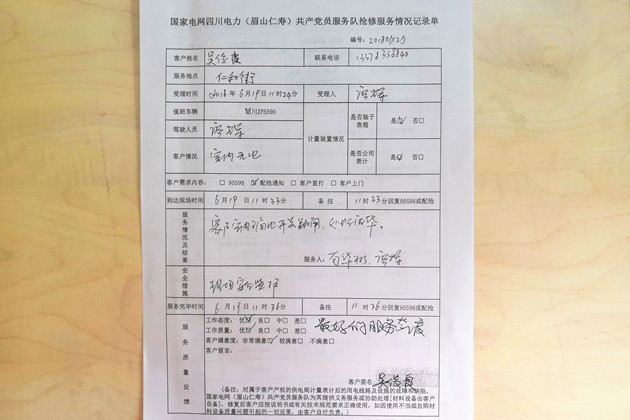 国家电网四川电力（眉山仁寿）共产党员服务队抢修服务情况记录单
编号：
客户姓名 联系电话
服务地点 仁和街
受理时间 2018年6月19日11时24分 受理人
值班车辆 川ZPS590 是否装于表箱 是☑ 否□
驾驶人员 计量装置情况
客户情况 室内无电 是否公司表计 是☑ 否□
客户需求内容： □ 95598 ☑配抢通知 □ 客户直打 □ 客户上门
到达现场时间 6月19日11时33分 备注 11时33分回复95598或配抢
服务情况及结果
服务人：
安全措施
服务完毕时间 11时36分 备注 11时36分回复95598或配抢
服务质量反馈
工作态度： 优☑ 良□ 中□ 差□
工作质量： 优☑ 良□ 中□ 差□
最好的服务态度
客户满意度：非常满意☑ 较满意□ 不满意□
客户留言：
客户签名
（备注：对属于客户产权的供电局计量表计后的用电线路及设施的故障和缺陷，
国家电网（眉山仁寿）共产党员服务队为其提供义务服务或协助处理[材料设备由客户
自备]。修复后客户应按说明书或有关技术规范要求正确使用，如因使用不当或自购材
料设备质量问题引起的一切后果，由客户自行负责。）